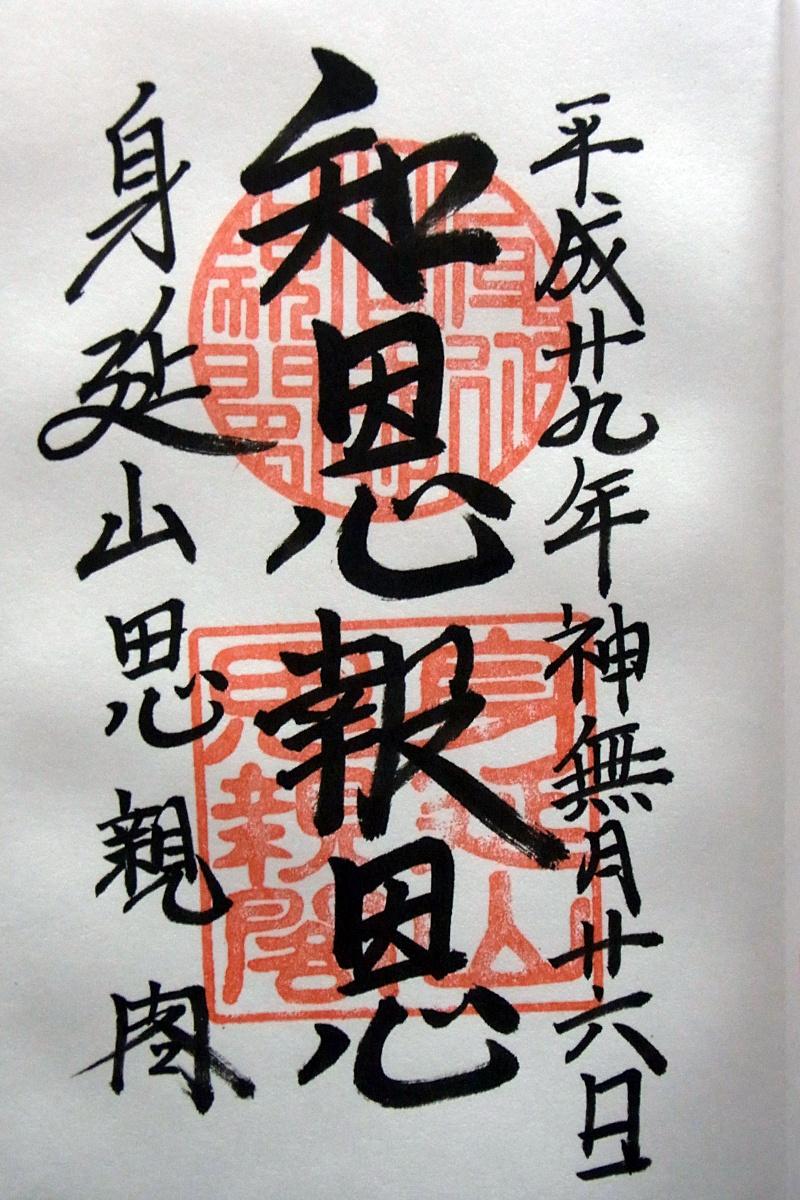 平成廿九年神無月廿六日
知恩報恩
身延山思親閣